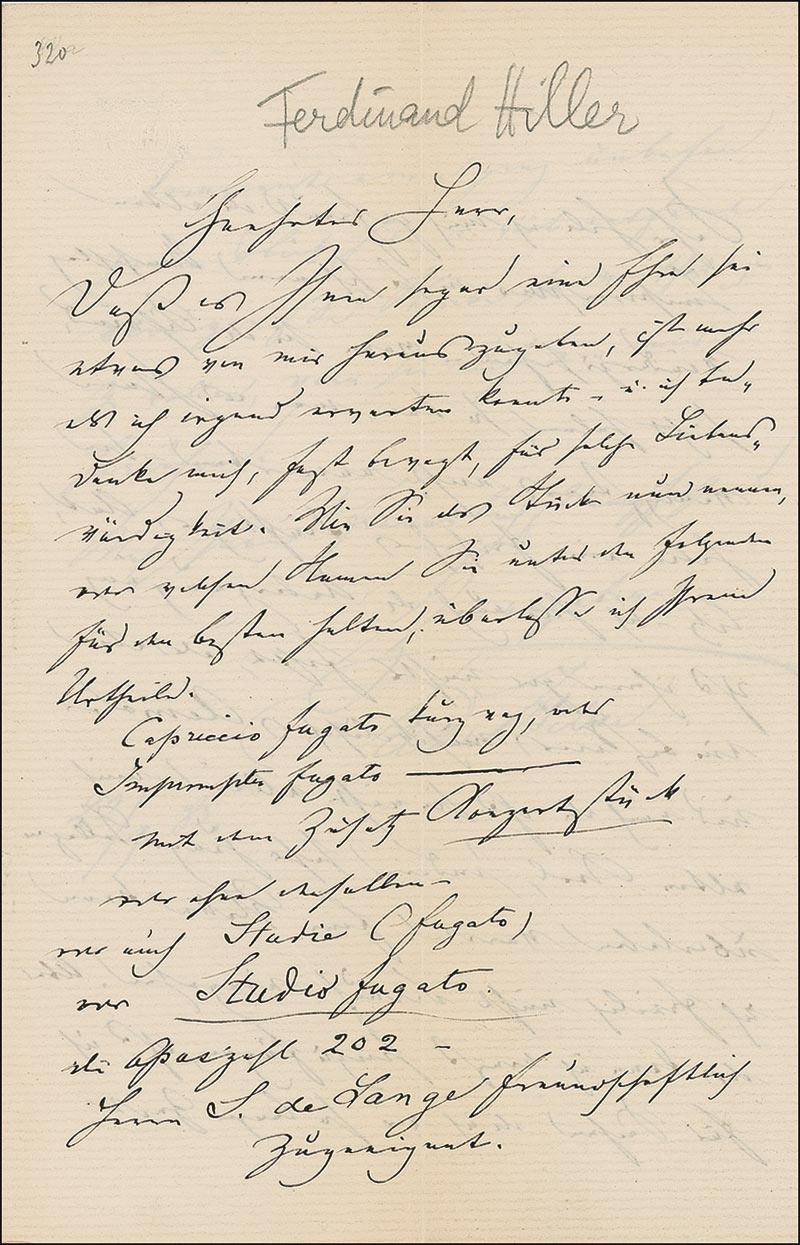 320
Ferdinand Hiller
Geehrter Herr,
Daß es Ihnen sogar eine Ehre sei
etwas von mir herauszugeben, ist mehr
als ich irgend erwarten konnte – u. ich be„
danke mich, fast bewegt, für solche Liebens„
würdigkeit. Wie Sie das Stück nun nennen,
oder welchen Namen Sie unter den folgenden
für den besten halten, überlasse ich Ihrem
Urtheile.
Capriccio fugato kurzweg, oder
Impromptu fugato ———
mit dem Zusatz Konzertstück
oder ohne denselben –
oder auch Studie (fugato)
oder Studio fugato.
die Opuszahl 202 –
Herrn S. de Lange freundschaftlich
zugeeignet.